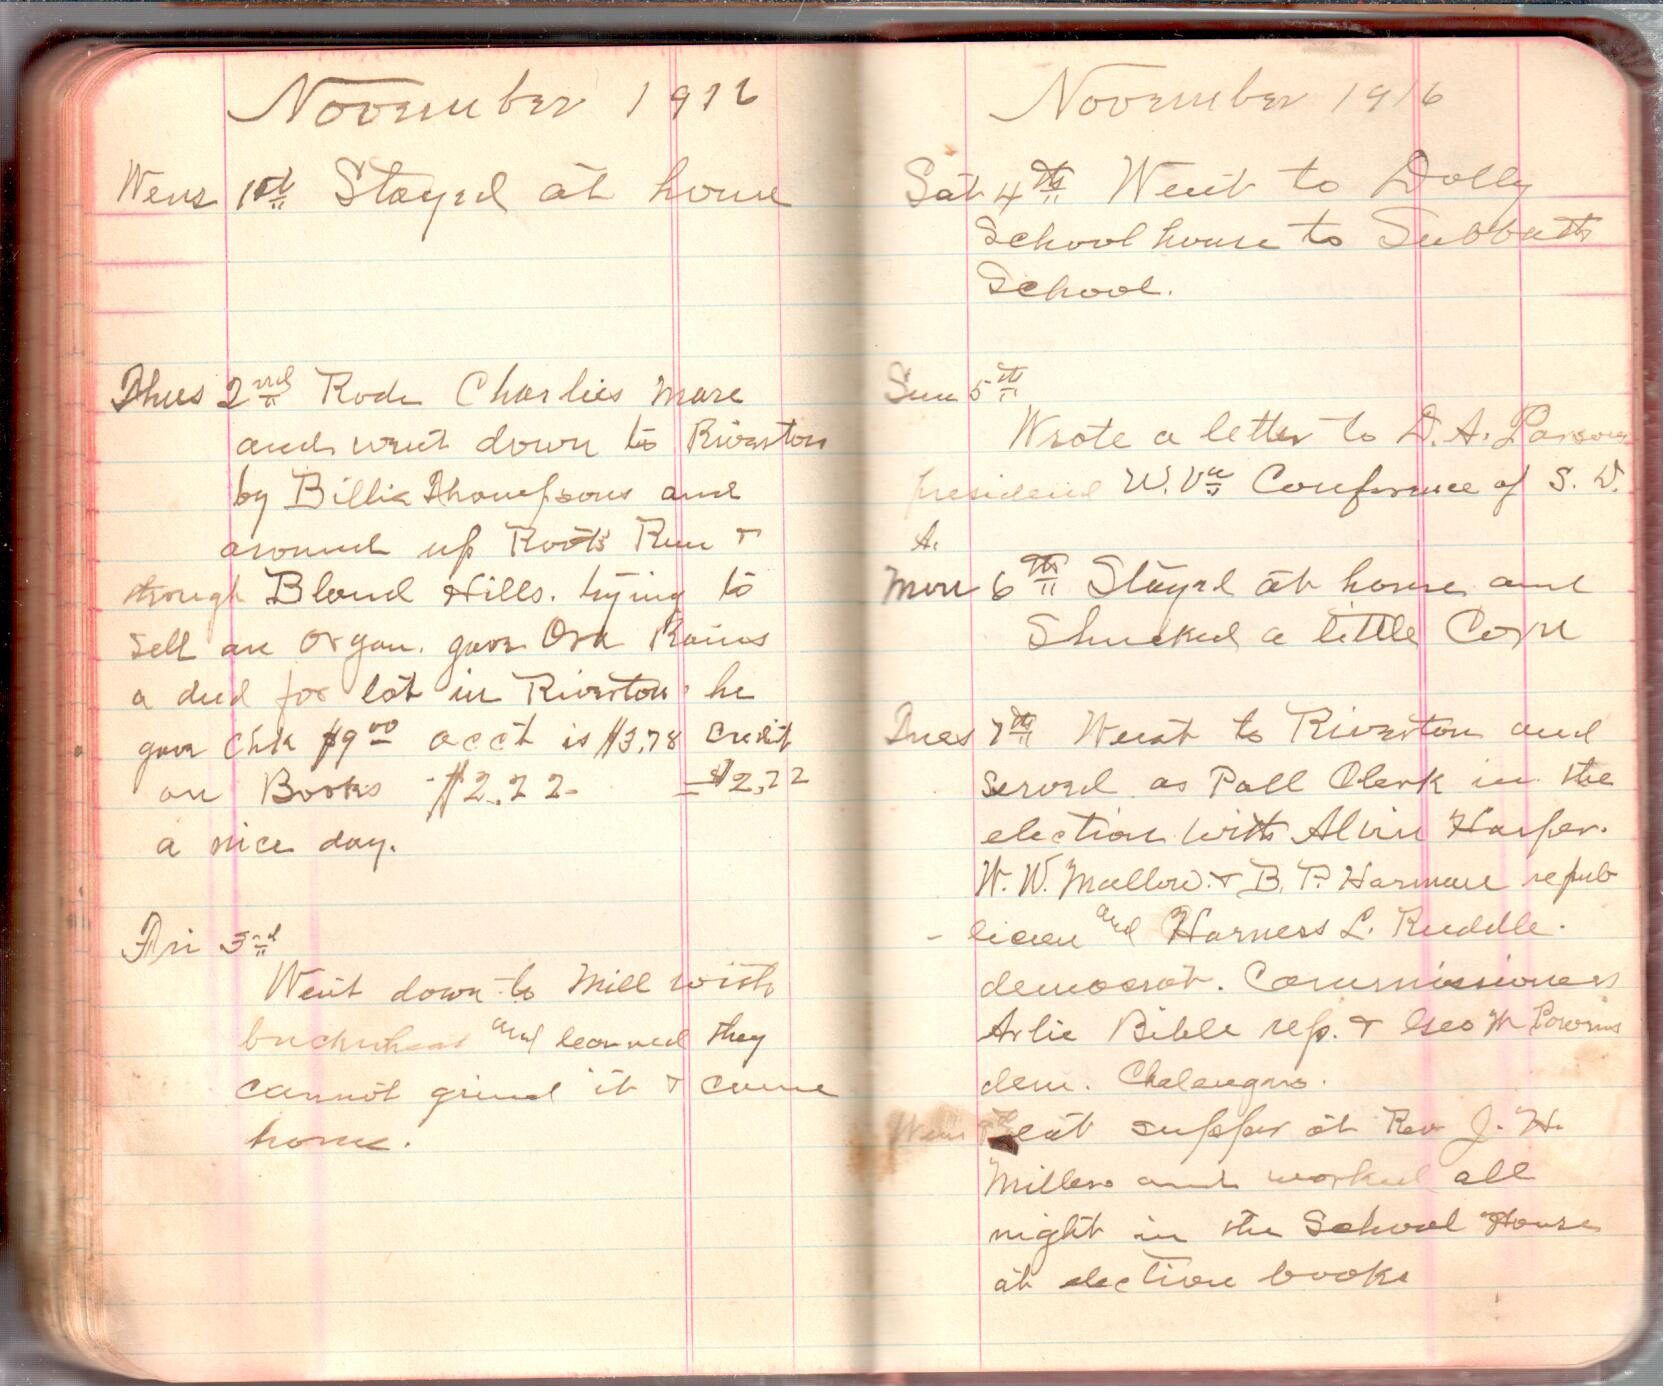 November 1916
Wens 1st Stayed at home
Thurs 2nd Rode Charlies mare
and went down to Riverton
by Billie Thompsons and
around up Roots Run &
through Bland Hills. trying to
sell an Organ. gave Ora Raines
a deed for lot in Riverton he
gave chk $9.00 acct is $3,78 Credit
on Books $2.22 $2,22
a nice day.
Fri 3rd
Went down to Mill with
buckwheat and learned they
cannot grind it & come
home.
November 1916
Sat 4th Went to Dolly
School house to Sabbath
School.
Sun 5th
Wrote a letter to D. A. Parsons
president W. Va Conference of S. D.
A.
Mon 6th Stayed at home and
Shucked a little Corn
Tues 7th Went to Riverton and
served as Poll Clerk in the
election with Alvin Harper.
W. W. Mallow. & B. P. Harman repub
- lican and Harness L. Ruddle.
democrat. Commissioners
Arlie Bible rep. & Geo M
dem. Chalengers.
Wens eat supper at Rev J. H.
Millers and worked all
night in the School House
at election books